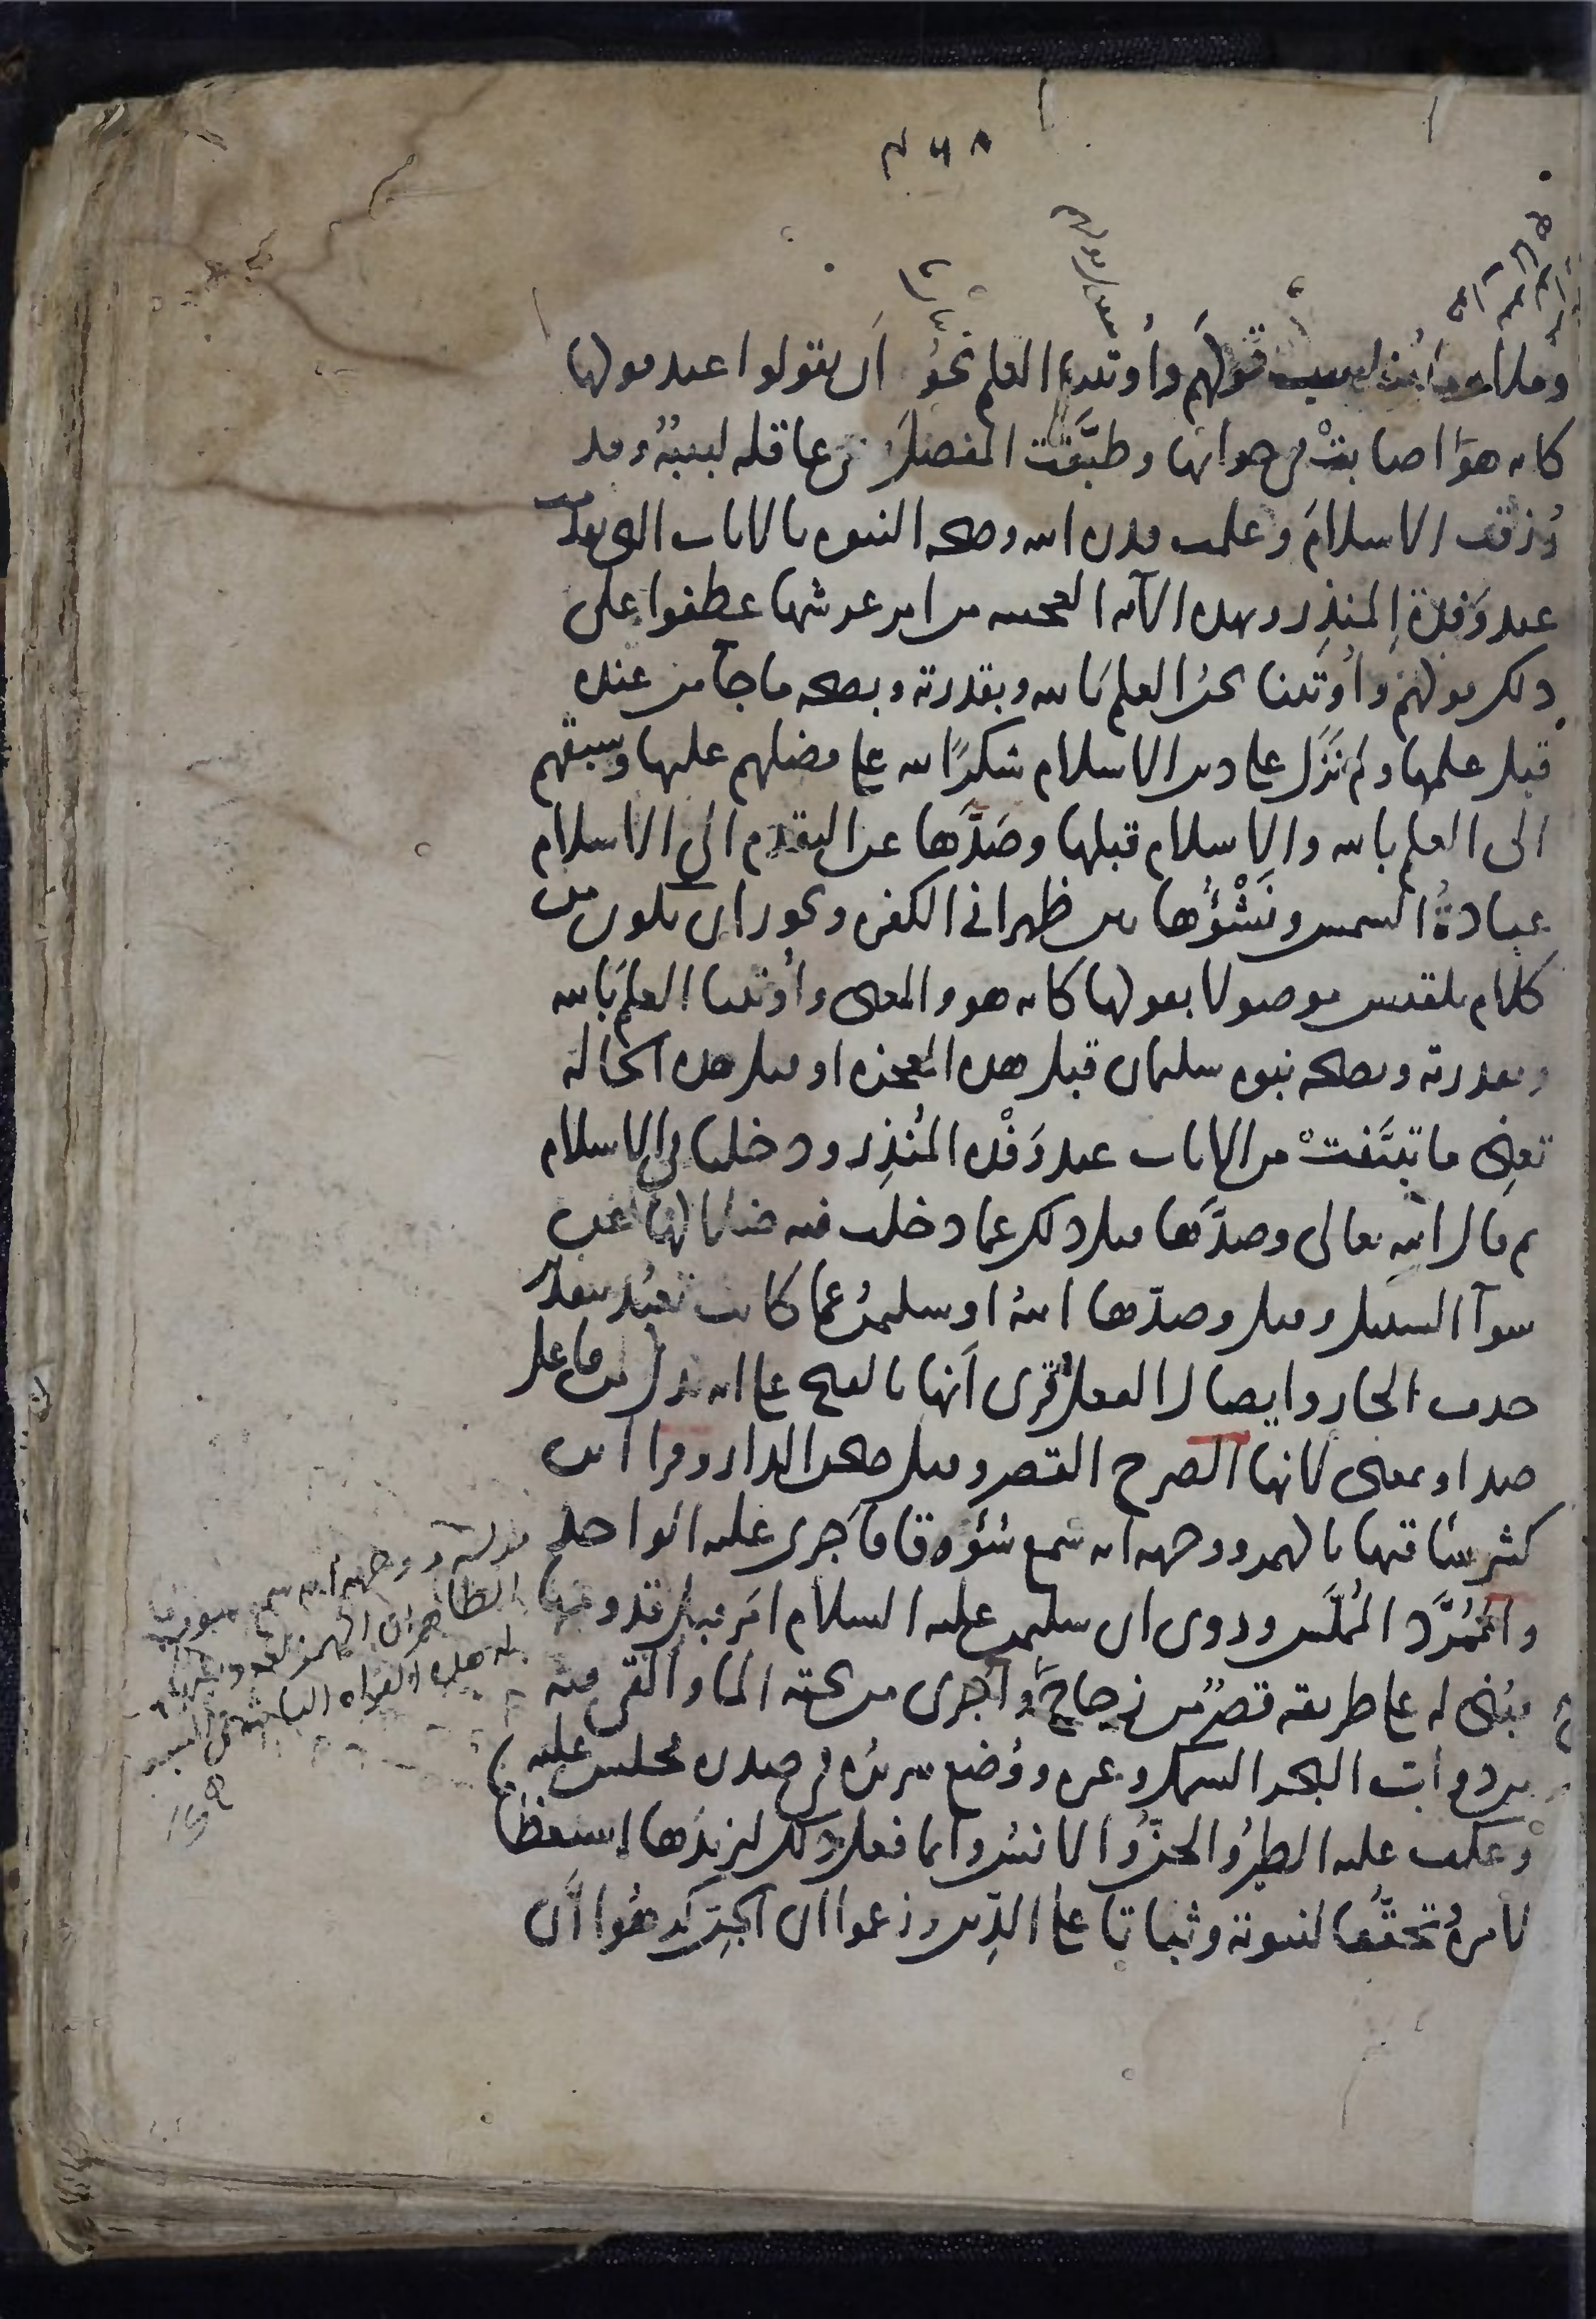 وملاءموا به قولهم وأوتينا العلم نحوُ أن يقولوا عند قولها
كانه هو أصابتْ في جوابها وطبَّقت المفصل وهي عاقلة لبيبةٌ وقد
رُزقت الاسلامَ وعلمت قدرة الله وصحة النبوة بالايات التي تقدمت
عند وَفدة المنذر وبهذه الآية العجيبة من امر عرشها عطفوا على
ذلك قولهم وأُوتينا نحن العلم بالله وبقدرته وبصحة ما جا من عنده
قبل علمها ولم نَزَل على دين الاسلام شكرًا لله على فضلهم عليها وسبقهم
الى العلم بالله والاسلام قبلها وصَدَّها عن التقدم الى الاسلام
عبادةُ الشمس ونَشْؤُها بين ظهراني الكفرة ويجوز ان يكون من
كلام بلقيس موصولا بقولها كانه هو والمعنى وأُوتينا العلم بالله
وبقدرته وبصحة نبوة سليمان قبل هذه المعجزة او قبل هذه الحالة
تعني ما تبيَّنتْ من الايات عند وَفْدة المُنذِر ودخلنا في الاسلام
ثم قال الله تعالى وصدَّها قبل ذلك عما دخلت فيه ضلالها عن
سوآ السبيل وقيل وصدّها اللهُ او سليمنُ عما كانت تعبُد بتقدير
حذف الجار وايصال الفعل وقُرى أنها بالفتح على انه بدل من فاعل
صد او بمعنى لانها الصرح القصر وقيل صحن الدار وقرا ابن
كثير سأقيها بالهمز ووجهه انه سمع سُؤوقا فأجرى عليه الواحد
والمُمَرَّد المُملَّس وروى ان سليمن عليه السلام امَر قبل قدومها
فبُني له على طريقه قصرٌ من زجاجٍ وأجرى من تحته الما وألقى فيه
من دواب البحر السمك وغيره ووُضع سريرُه في صدره فجلس عليه
وعكف عليه الطيرُ والجنُّ والانسُ وانما فعل ذلك ليزيدَها استعظامًا
لامره وتحققًا لنبوته وثباتا على الدِّين وزعموا ان الجن كرهُوا أن